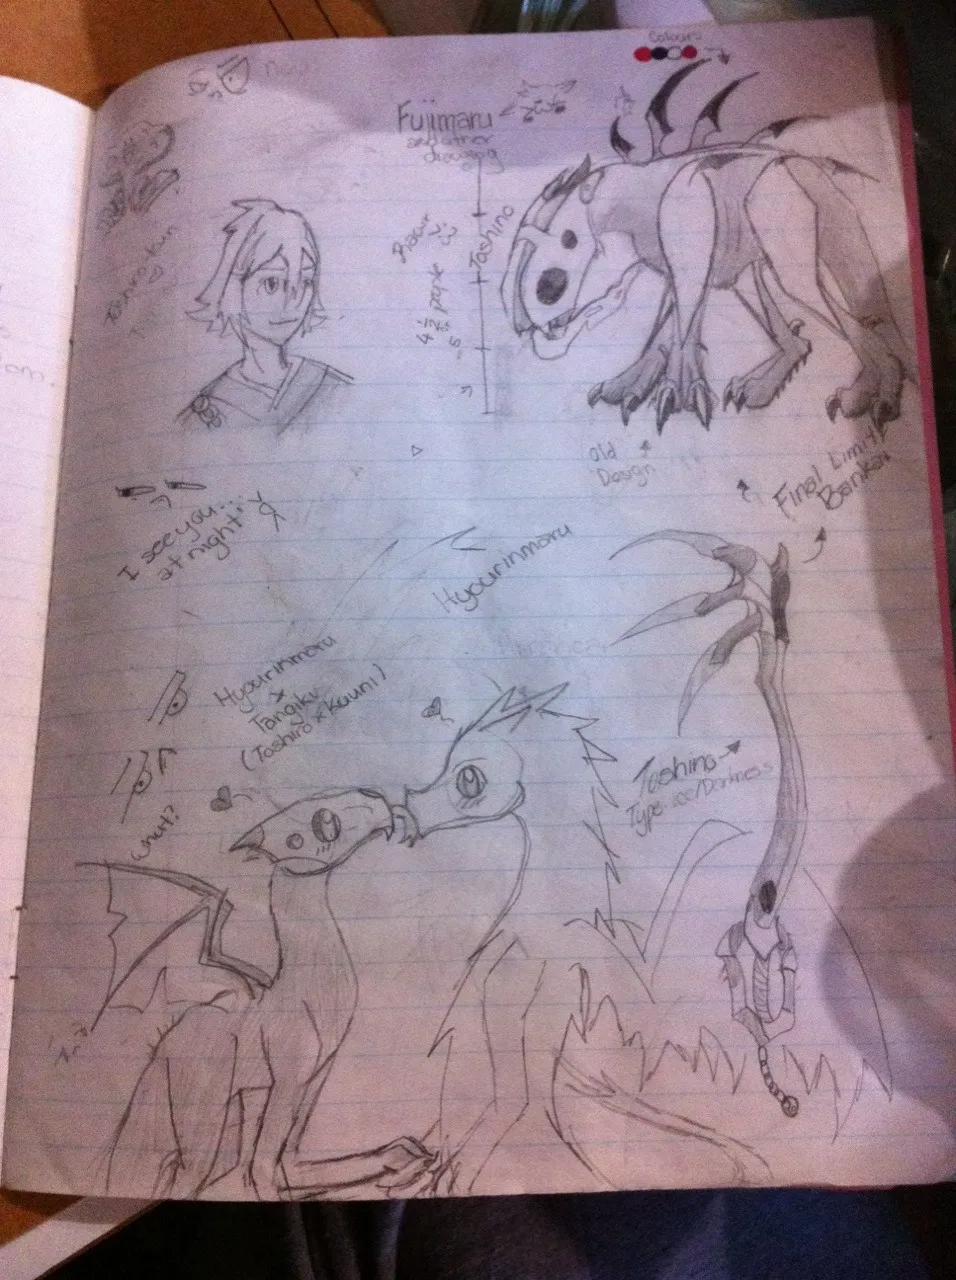 Colours
Fujimaru
and other
drawing
Rawr
:3
Toshino
people
Old
Design
Final Limit
Bankai
I see you...
at night
Hyourinmaru
Hyourinmaru
x
Tangiku
(Toshiro x Kuuni)
Toshino
Type: ice/Darkness
what?